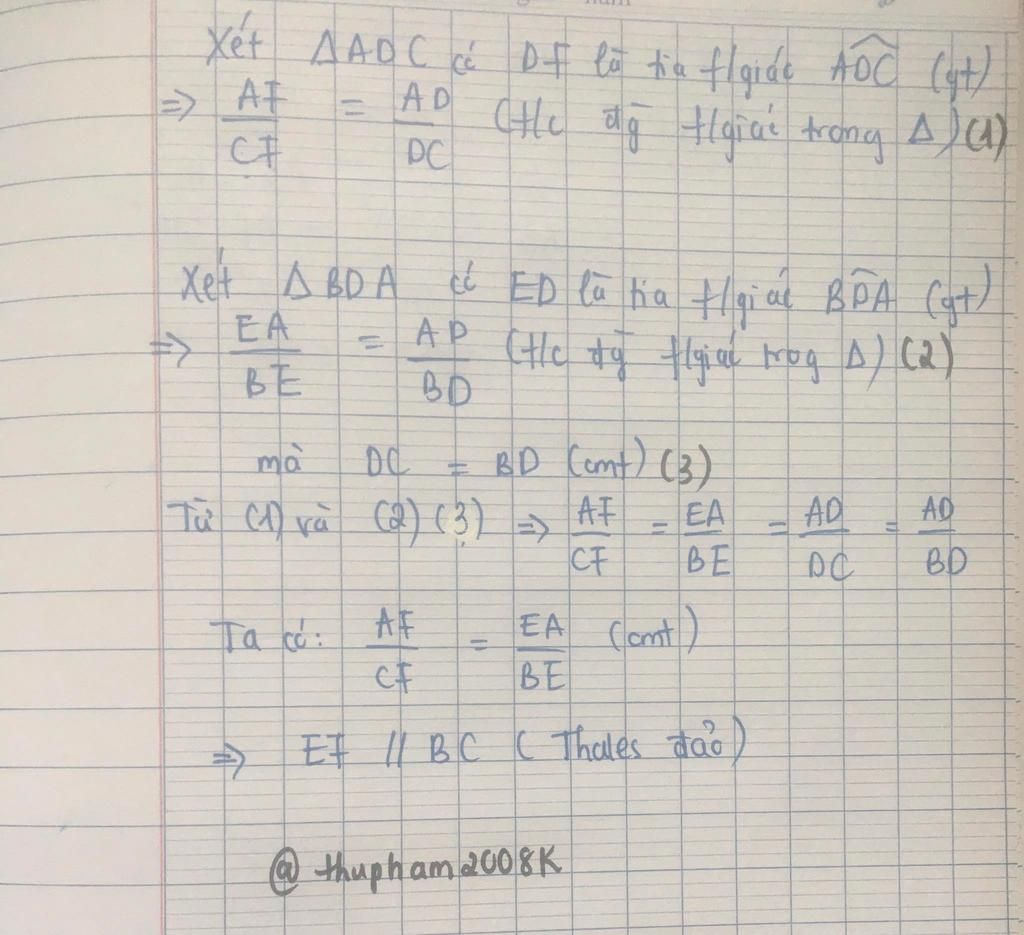 Xét ΔADC có DF là tia f/giác ADC (gt)
=> AF/CF = AD/DC (t/c đg f/giác trong Δ) (1)
Xét ΔBDA có ED là tia f/giác BDA (gt)
=> EA/BE = AD/BD (t/c đg f/giác trog Δ) (2)
mà DC = BD (cmt) (3)
Từ (1) và (2) (3) => AF/CF = EA/BE = AD/DC = AD/BD
Ta có: AF/CF = EA/BE (cmt)
=> EF // BC (Thales đảo)
@thupham2008K